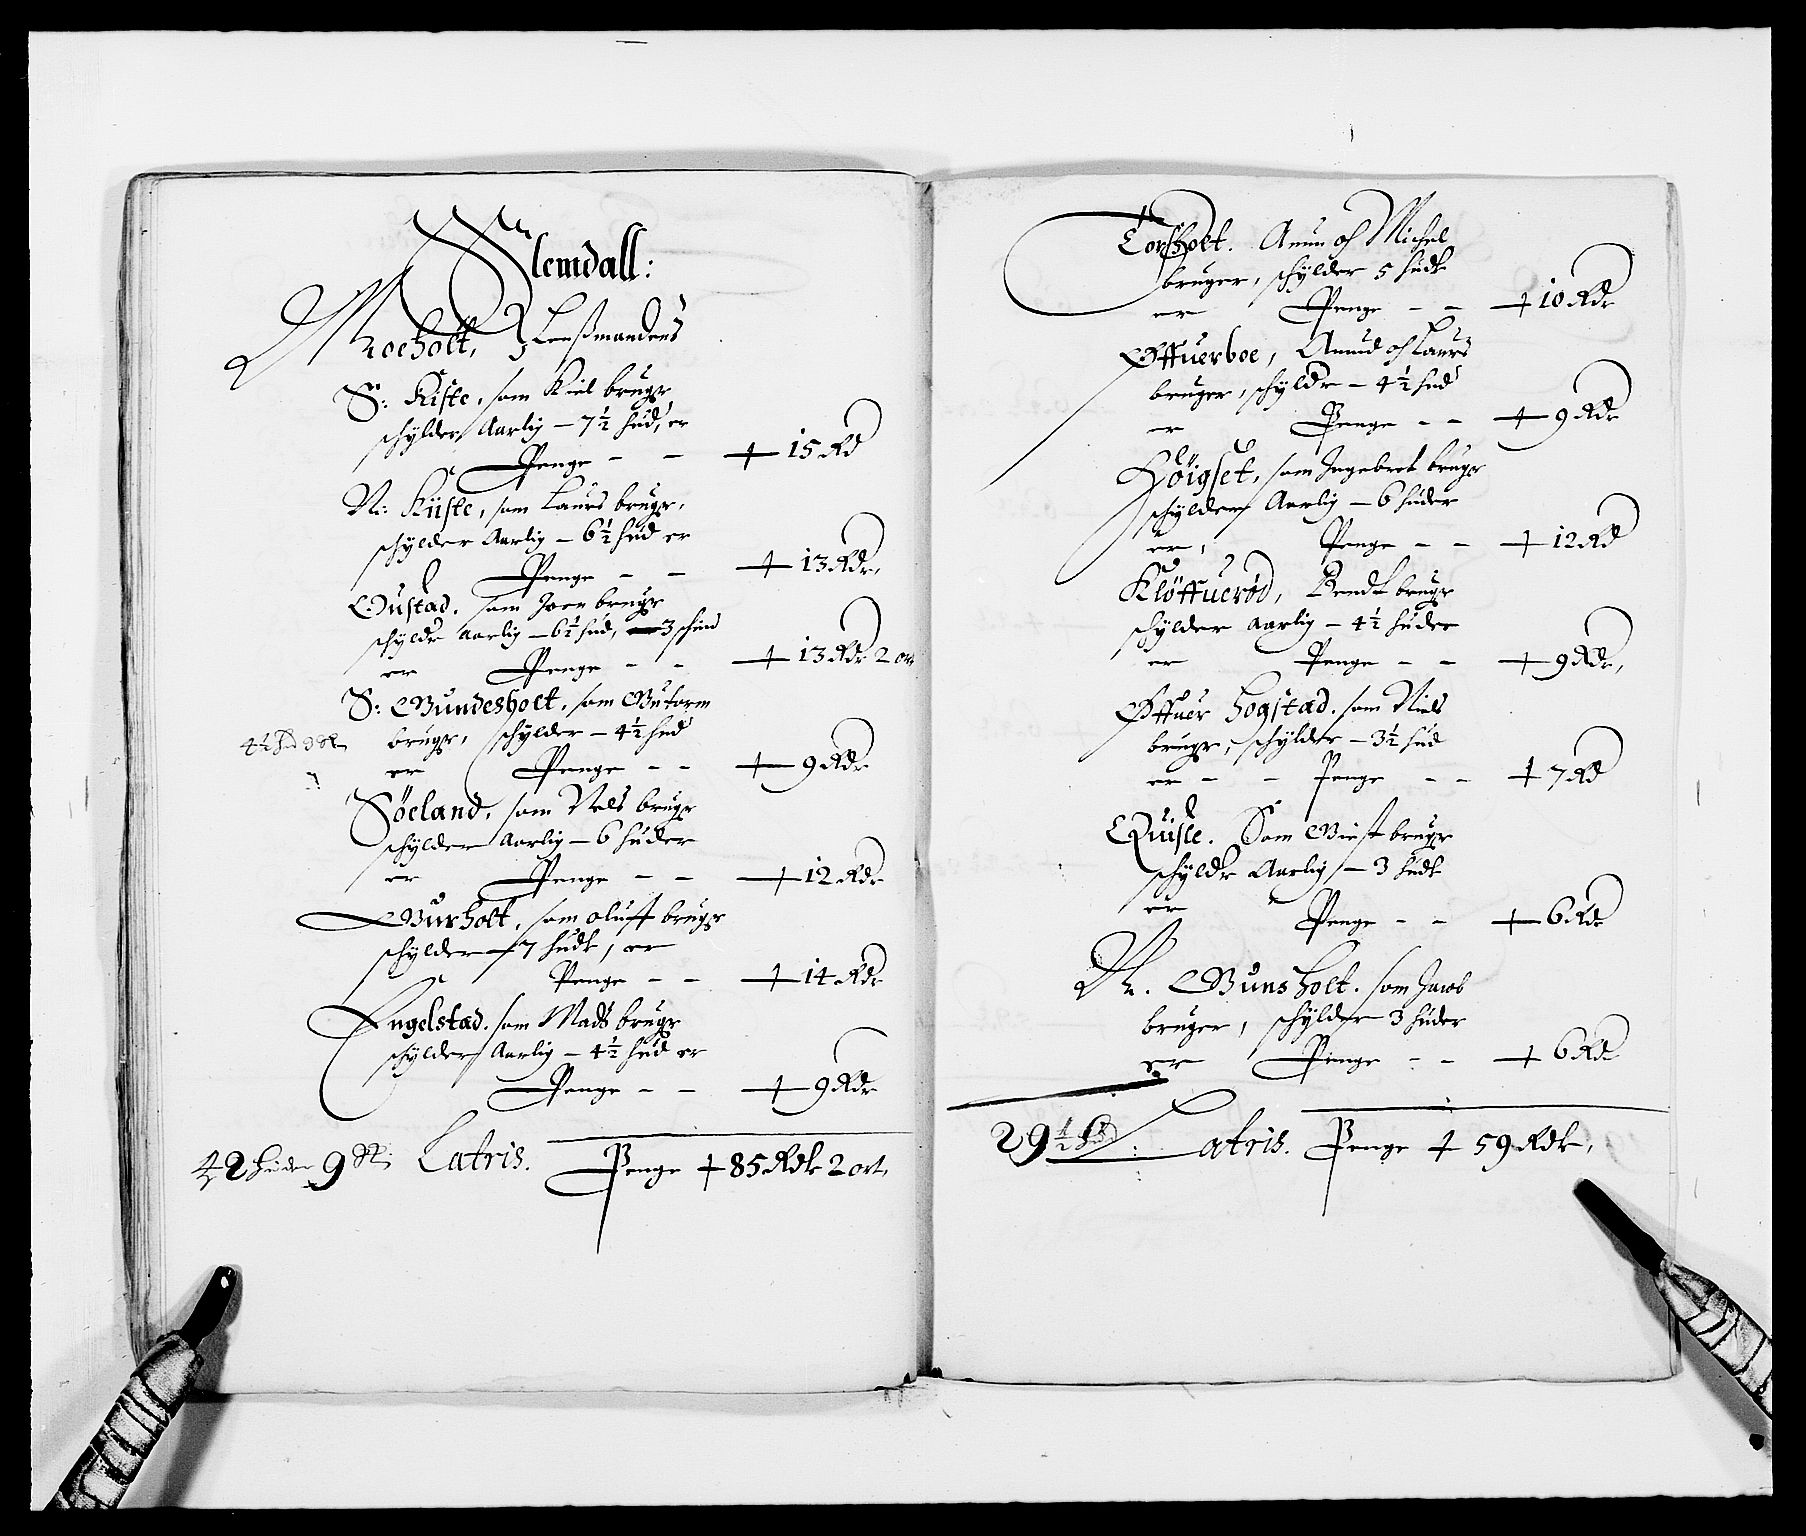 Slemdall:
Moeholt, Lenßmandens
S: Riste, som Kiel brugr
schylder Aarlig – 7½ hud, er
Penge – – 15 Rd
N: Riiste, som Laurs brugr,
schylder Aarlig – 6½ hud er
Penge – – 13 Rdr,
Gustad. som Joen brugr
schyldr Aarlig – 6½ hud, 3 schind
er Penge – – 13 Rdr 2 ort
S: Gundesholt, som Gutorm
brugr, schylder – 4½ hud
4½ hd 9 sk
er Penge – – 9 Rdr
Söeland, som Nels brugr
schylder Aarlig – 6 huder
er Penge – – 12 Rdr
Gurholt, som oluff brugr
schylder – 7 hudr, er
Penge – – 14 Rdr
Engelstad. som Mads brugr
schylder Aarlig – 4½ hud er
Penge – – 9 Rdr
42 huder 9 sk: Latris. Penge 85 Rdr 2 ort,
Torsholt. Anun och Michel
bruger, schylder 5 hudr
er Penge – – 10 Rdr
Offuerboe, Anund och Laurs
bruger, schyldr – 4½ hud
er Penge – – 9 Rdr
Höigset, som Ingebret brugr
schylder Aarlig – 6 huder
er, Penge – – 12 Rd
Klöffuerød, Bendt brugr
schylder Aarlig – 4½ huder
er Penge – – 9 Rdr,
Offuer Hogstad. som Niels
brugr, schylder – 3½ hud
er – – Penge – – 7 Rd
Quisle. Som brugr
schyldr Aarlig – 3 hudr
er Penge – – 6 Rdr
N. Gunsholt. som Jacob
bruger, schylder 3 huder
er Penge – – 6 Rdr
29½ hud: Latris. Penge 59 Rdr,